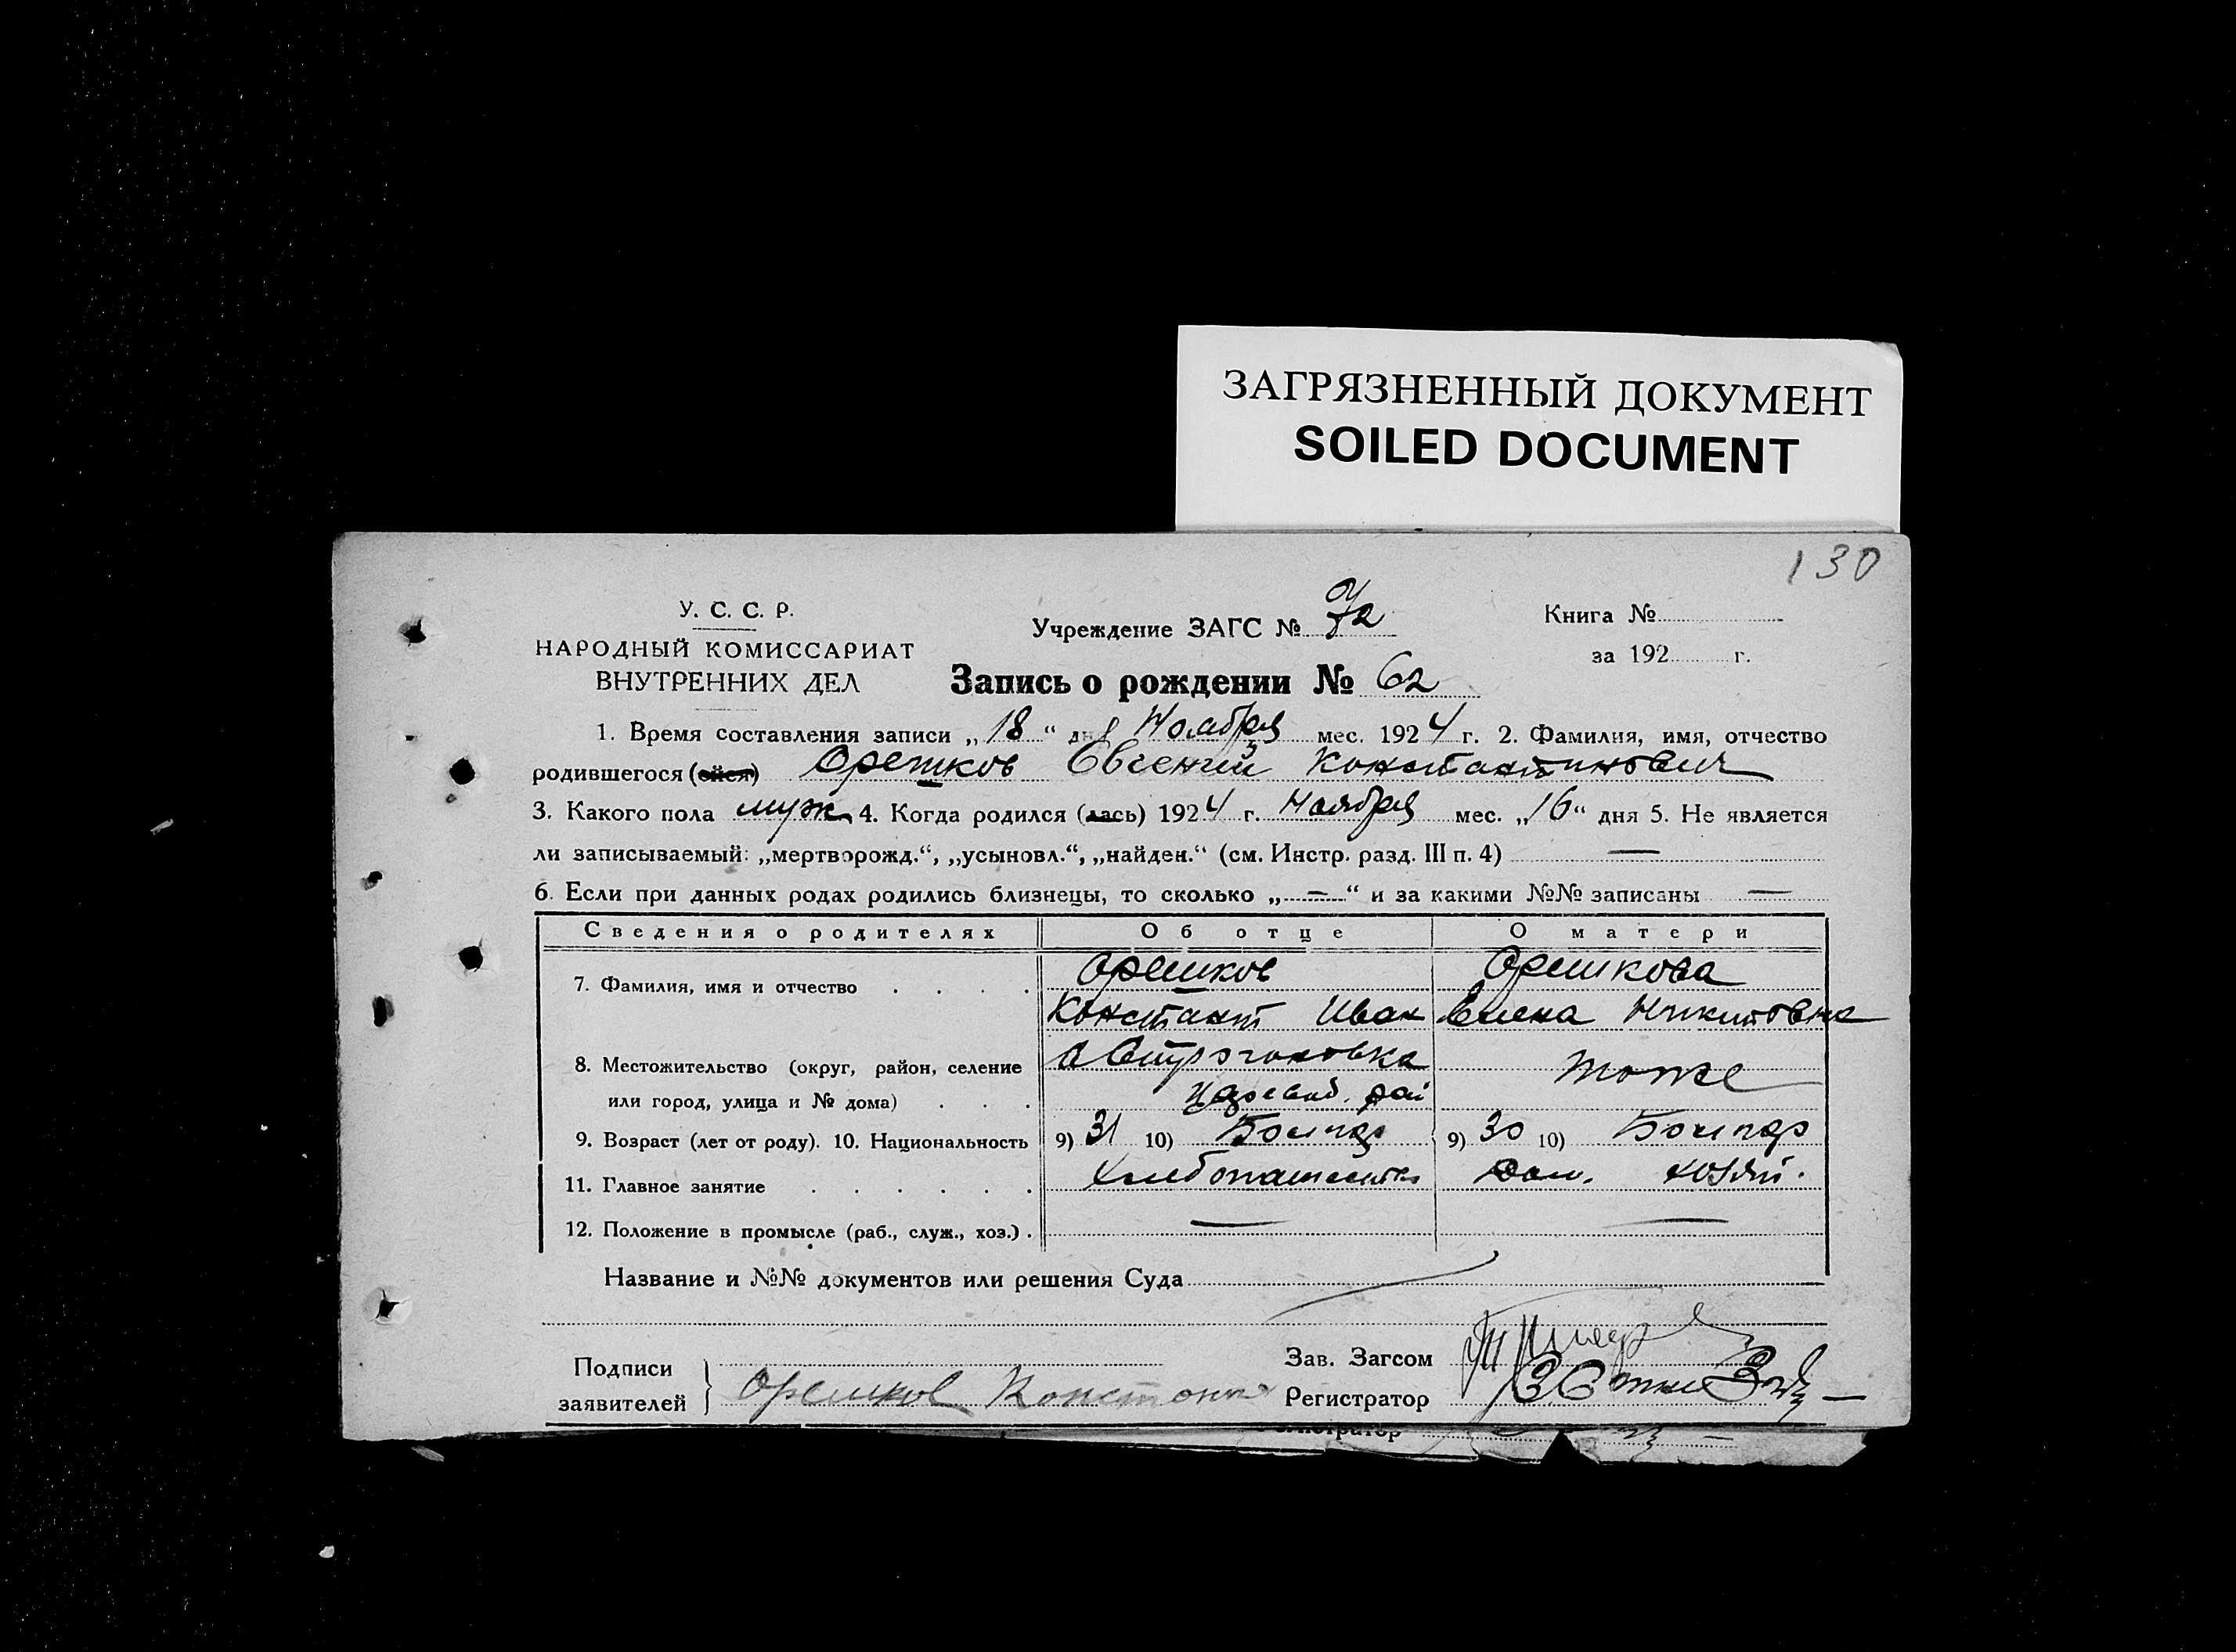 ЗАГРЯЗНЕННЫЙ ДОКУМЕНТ
SOILED DOCUMENT
130
У. С. С. Р.
НАРОДНЫЙ КОМИССАРИАТ
ВНУТРЕННИХ ДЕЛ
Учреждение ЗАГС №
Книга №
за 192 г.
Запись о рождении № 62
1. Время составления записи „18“ дня Ноября мес. 1924 г. 2. Фамилия, имя, отчество
родившегося (ойся) Орешков Евгений Константинович
3. Какого пола муж 4. Когда родился (лась) 1924 г. Ноября мес. „16“ дня 5. Не является
ли записываемый: „мертворожд.“, „усыновл.“, „найден.“ (см. Инстр. разд. III п. 4) —
6. Если при данных родах родились близнецы, то сколько „—“ и за какими №№ записаны —
Сведения о родителях Об отце О матери
7. Фамилия, имя и отчество Орешков Орешкова
Констант Иван Елена Никитовна
8. Местожительство (округ, район, селение
или город, улица и № дома) тоже
9. Возраст (лет от роду). 10. Национальность 9) 31 10) Болгар 9) 30 10) Болгар
11. Главное занятие Хлебопашество Дом. хозяй.
12. Положение в промысле (раб., служ., хоз.) — —
Название и №№ документов или решения Суда
Подписи
заявителей Орешков Констант
Зав. Загсом
Регистратор